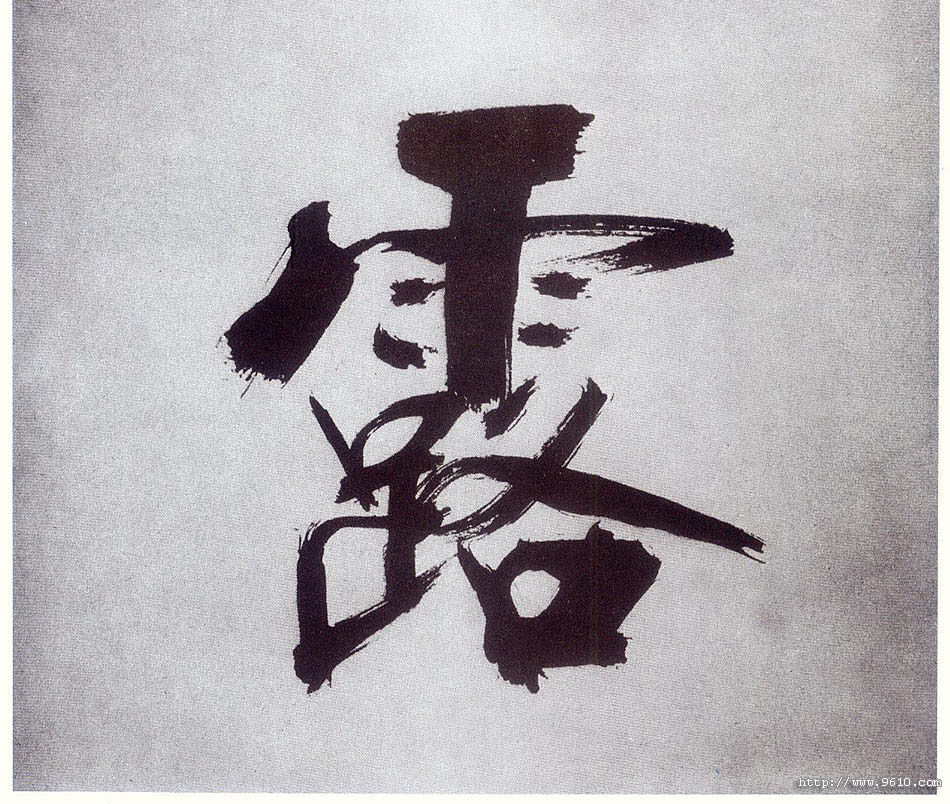 露
http://www.9610.com